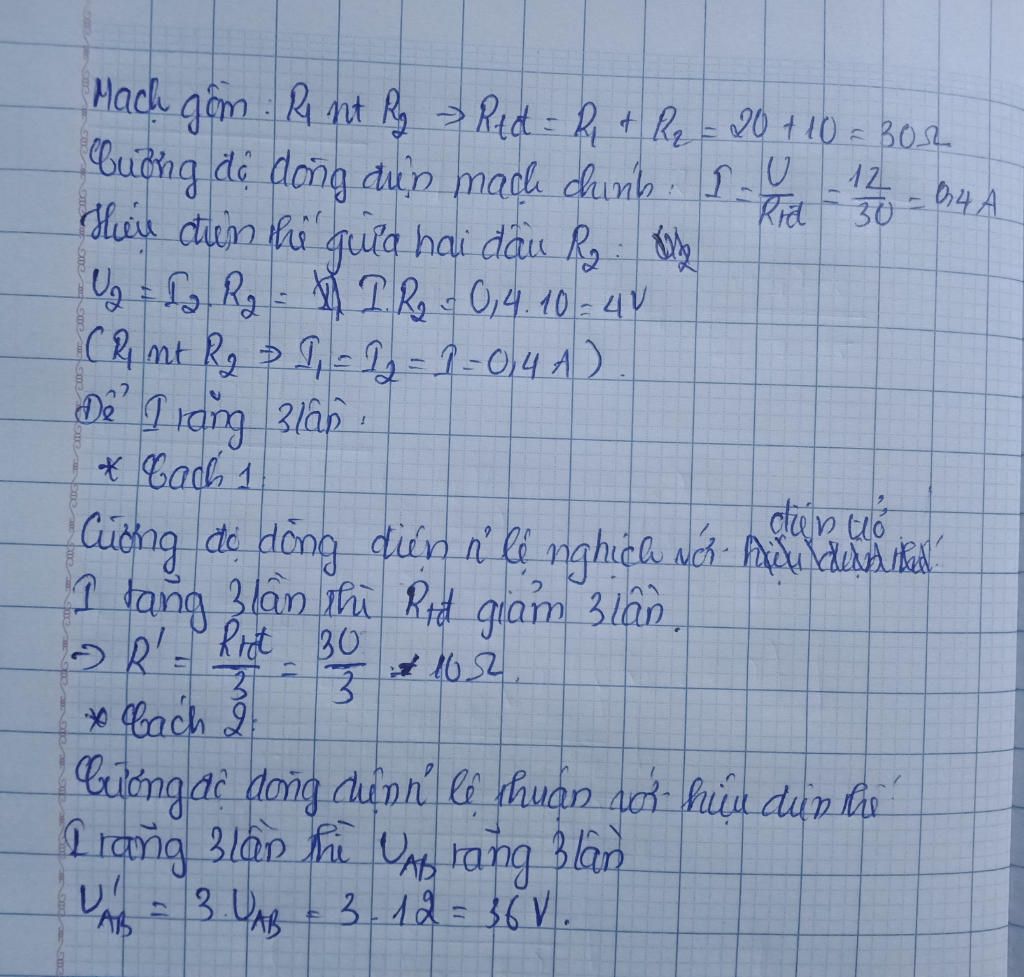 Mạch gồm: R₁ nt R₂ => Rtđ = R₁ + R₂ = 20 + 10 = 30Ω
Cường độ dòng điện mạch chính: I = U/Rtđ = 12/30 = 0,4A
Hiệu điện thế giữa hai đầu R₂:
U₂ = I₂.R₂ = I.R₂ = 0,4.10 = 4V
(R₁ nt R₂ => I₁ = I₂ = I = 0,4A).
Để I tăng 3 lần:
* Cách 1
điện trở
Cường độ dòng điện tỉ lệ nghịch với
I tăng 3 lần thì Rtđ giảm 3 lần.
=> R' = Rtđ/3 = 30/3 = 10Ω.
* Cách 2:
Cường độ dòng điện tỉ lệ thuận với hiệu điện thế
I tăng 3 lần thì U_AB tăng 3 lần
U'_AB = 3.U_AB = 3.12 = 36V.